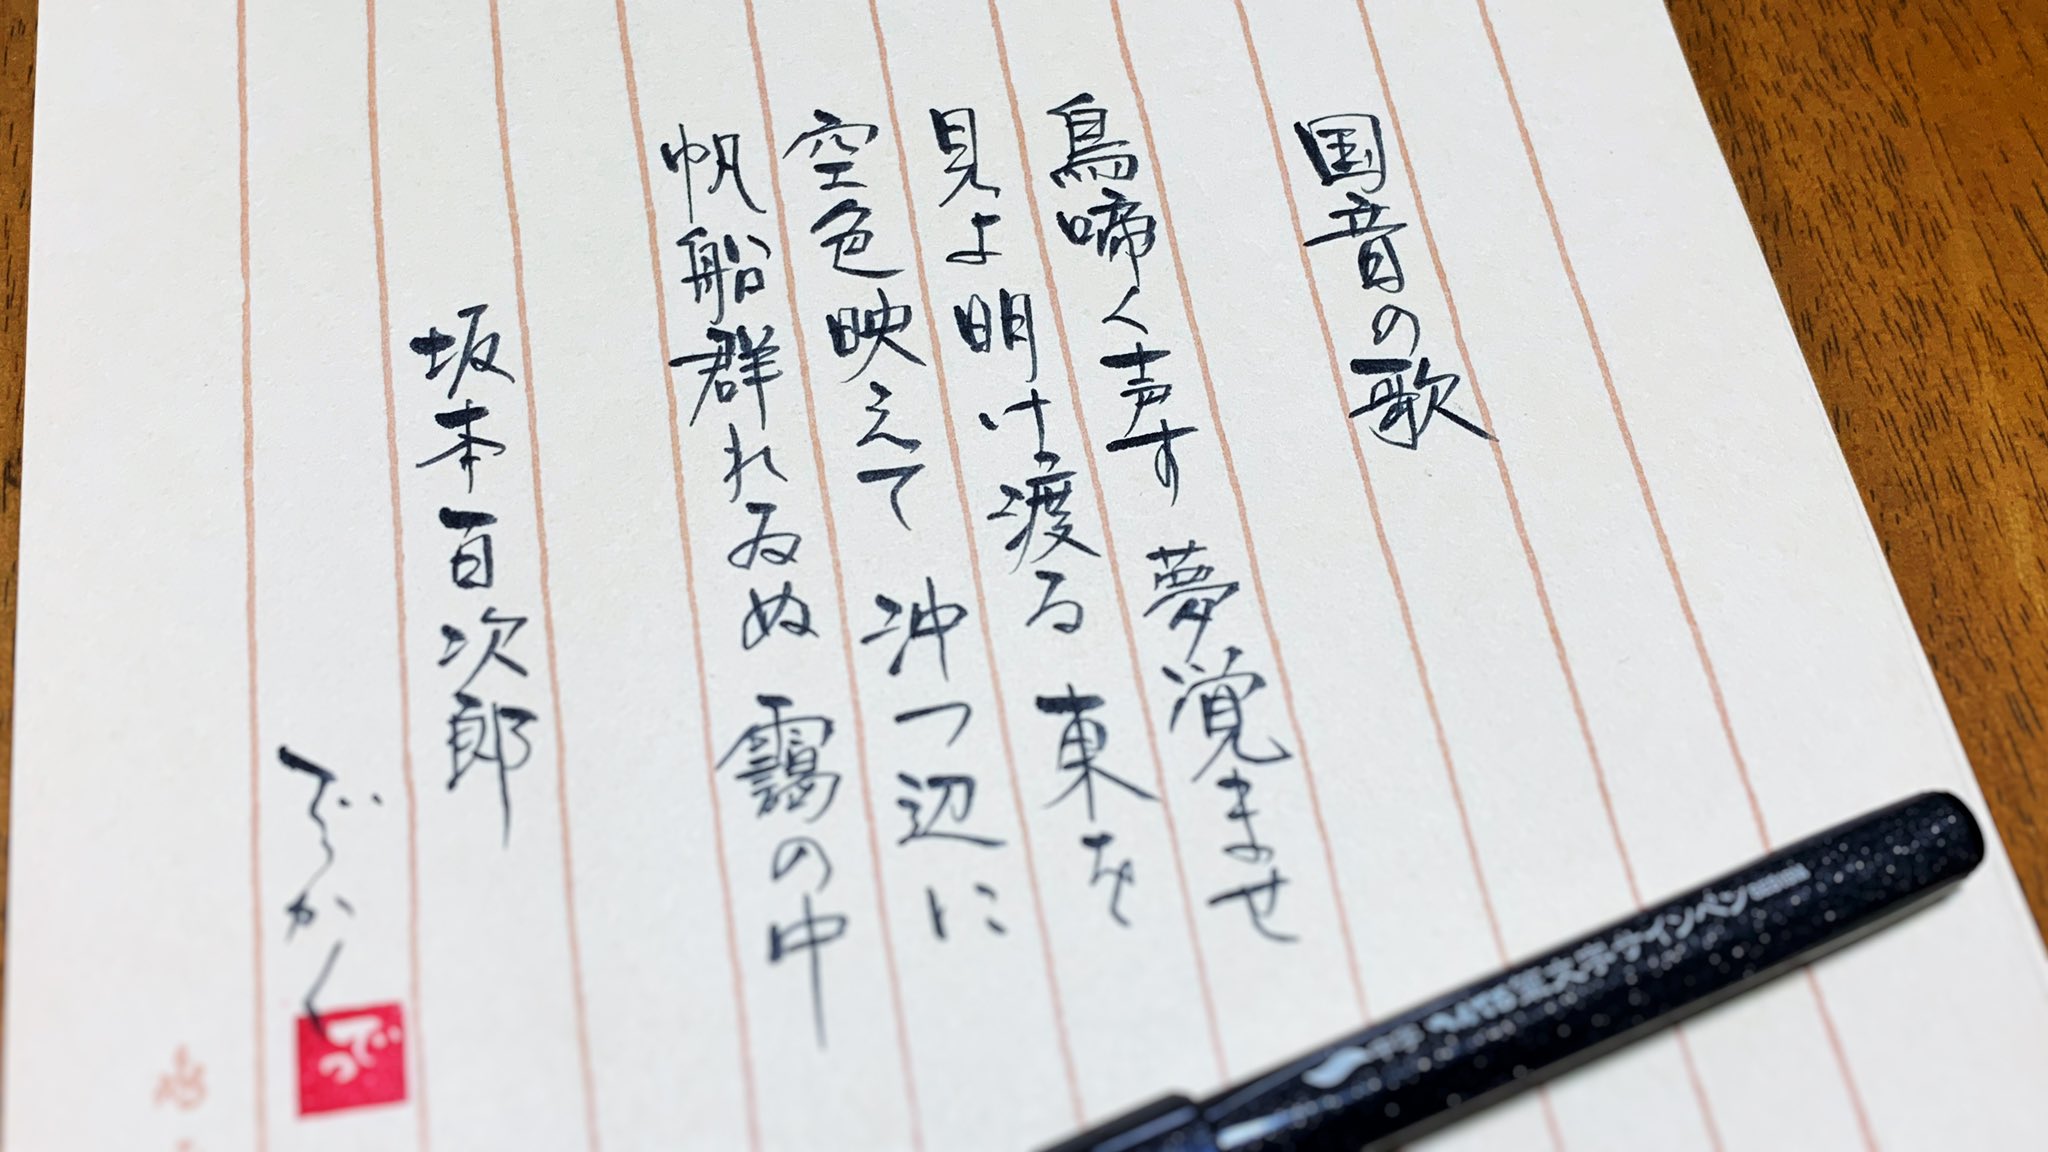 国音の歌
鳥啼く声す 夢覚ませ
見よ明け渡る 東を
空色映えて 沖つ辺に
帆船群れゐぬ 靄の中
坂本百次郎
でっかく
でっ
筆文字サインペン